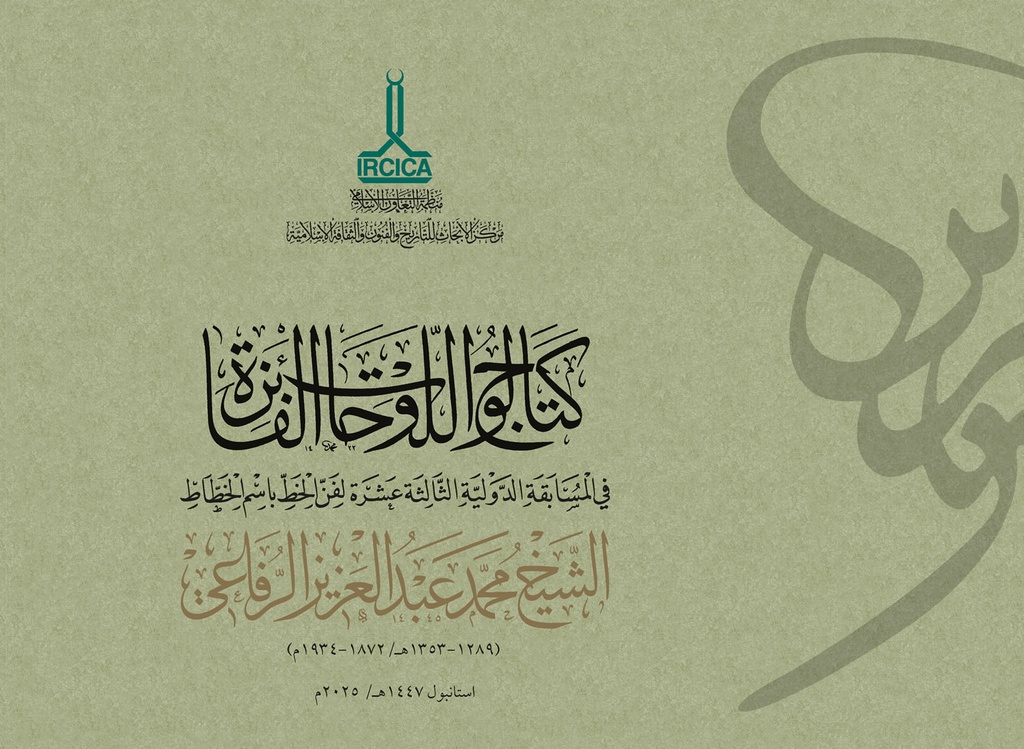 IRCICA
منظمة التعاون الإسلامي
مركز الأبحاث للتاريخ والفنون والثقافة الإسلامية
كتالوج اللوحات الفائزة
في المسابقة الدولية الثالثة عشرة لفن الخط باسم الخطاط
الشيخ محمد عبد العزيز الرفاعي
(١٢٨٩-١٣٥٣هـ/ ١٨٧٢-١٩٣٤م)
استانبول ١٤٤٧هـ/ ٢٠٢٥م